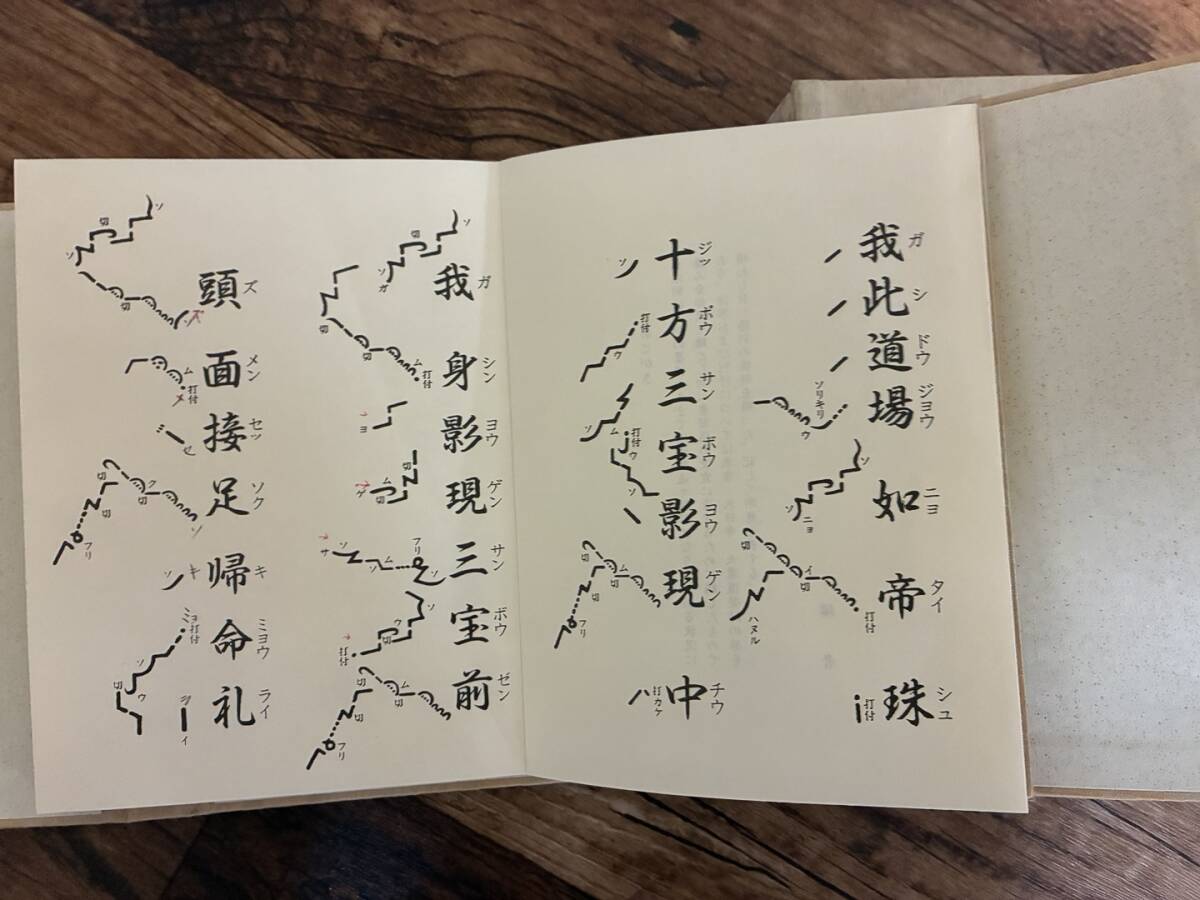 我此道場如帝珠
ガ シ ドウ ジヨウ ニヨ タイ シユ
ソリキリ ウ ソ ニヨ 切 イ 切 ハヌル 打付 打付
十方三宝影現中
ジッ ボウ サン ボウ ヨウ ゲン チウ
ソ 打付 ウ ソ ム 打付 ウ ソ 切 ム 切 フリ 打カケ
我身影現三宝前
ガ シン ヨウ ゲン サン ボウ ゼン
ソ 切 ソ ガ 切 切 ム 打付 ヨ 切 ム 切 ゲ フリ ソ ム ソ サ ソ ウ 切 打付 切 ム 切 切 フリ
頭面接足帰命礼
ズ メン セッ ソク キ ミヨウ ライ
ソ 切 ソ 切 ソ ム 打付 セ 切 ク 切 切 ソ フリ ソ ミヨ 打付 ソ 切 ウ ヲ イ